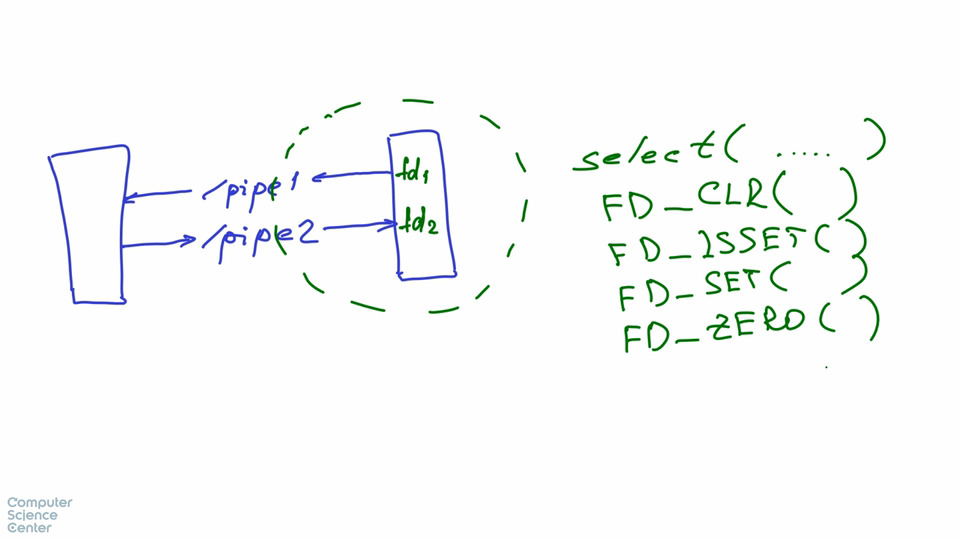 /pipe1
/pipe2
fd1
fd2
select( ..... )
FD_CLR( )
FD_ISSET( )
FD_SET( )
FD_ZERO( )
Computer
Science
Center